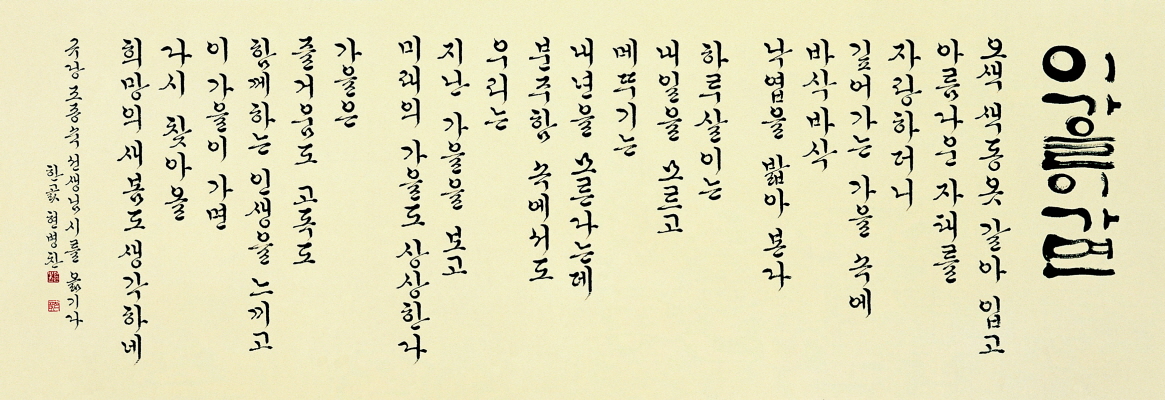 이 가을이 가면
오색 색동옷 갈아 입고
아름다운 자태를
자랑하더니
깊어가는 가을 속에
바삭바삭
낙엽을 밟아 본다
하루살이는
내일을 모르고
메뚜기는
내년을 모른다는데
분주함 속에서도
우리는
지난 가을을 보고
미래의 가을도 상상한다
가을은
즐거움도 고독도
함께하는 인생을 느끼고
이 가을이 가면
다시 찾아올
희망의 새봄도 생각하네
국강 조종숙 선생님 시를 옮기다
한곬 현병찬